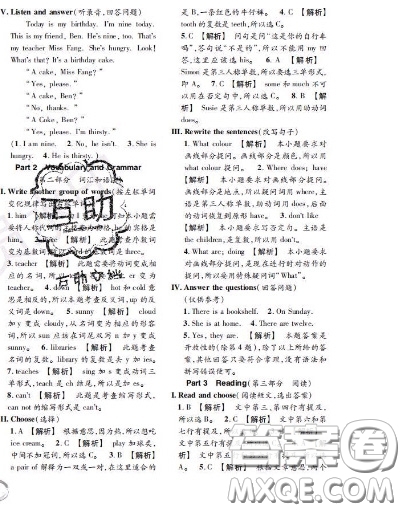 V. Listen and answer(听录音,回答问题)
Today is my birthday. I'm nine today.
This is my friend, Ben. He's nine, too. That's
my teacher Miss Fang. She's hungry. Look!
What's that? It's a birthday cake.
"A cake, Miss Fang?"
"Yes, please."
"A cake, Ben?"
"No, thanks."
"A Coke, Ben?"
"Yes, please. I'm thirsty."
(1. I am nine. 2. No, he isn't. 3. She is
hungry. 4. He is thirsty.)
Part 2 Vocabulary and Grammar
(第二部分 词汇和语法)
I. Write another group of words(按左栏单词
变化规律写出
1. him 【解析】
要将人称代词的主格变为宾格,he的宾格是
him。 2. words 【解析】 此题需要将单数词
变为复数词,word的复数是words。
3. teacher 【解析】 此题需要将动词变成相
应的名词,所以teach er变为
teacher。 4. 【解析】 hot和cold意
思是相反的,所以本题考查反义词,up的反
义词是down。 5. sunny 【解析】 cloud
加y变成cloudy,从名词变为相应的形容
词,所以sun应该在词尾双写n加y变成
sunny。 6. libraries 【解析】 此题考查
名词的复数。library的复数是去y加ies。
7. teaches 【解析】 sing加s变成动词三
单形式,teach是ch结尾,所以是加es。
8. can't 【解析】 此题是考查缩写形式,
can not的缩写形式是can't。
II. Choose(选择)
1. A 【解析】 根据意思,因为热,所以想吃
ice cream。 2. C 【解析】 play加球类,
中间不加冠词,所以选C。 3. B 【解析】
a pair of解释为一双或一对,在这里适合的
是B,一条红色的牛仔裤。 4. C 【解析】
tooth的复数是teeth,所以选C。
5. A 【解析】 问句是问“这是你的自行车
吗”,答句说“不是的”,所以不能用my回
答,这里应该选his。 6. A 【解析】
Simon是第三人称单数,所以要选三单形式,
即A。 7. A 【解析】 some和much不可
以用在否定句中,所以选A。
8. C 【解析】 Susie是第三人称单数,所以用助动词
does。
III. Rewrite the sentences(改写句子)
1. What colour 【解析】 本小题要求对
画线部分提问。画线部分是颜色,所以用
what colour提问。 2. Where does; have
【解析】 本小题要求对画线部分提问。画
线部分是地点,所以疑问词用where。主
语是第三人称单数,助动词用does,后面
的动词恢复到原形have。 3. don't like
【解析】 本小题要求写否定句。主语是
the children,是复数,所以用don't。
4. What are; doing 【解析】 本小题要求
对画线部分提问,是现在进行时对动作的
提问,所以使用特殊疑问词“What”。
IV. Answer the questions(回答问题)
(仅供参考)
1. There is a bookshelf. 2. On Sunday.
3. She is at home. 4. There are twelve.
5. Yes, they are. 【解析】 本题答案是
开放性的(除第4题),除了以上所给的答
案,其他回答只要符合常理,没有语法和
拼写错误便可。
Part 3 Reading(第三部分 阅读)
I. Read and choose(阅读短文,选出答案)
1. B 【解析】 文中第三、第四行有提及,
所以选B。 2. C 【解析】 文中第六和第
七行有提及,所
文中第五行有提及
5. C 【解析】 根据文章意思,文中第两个